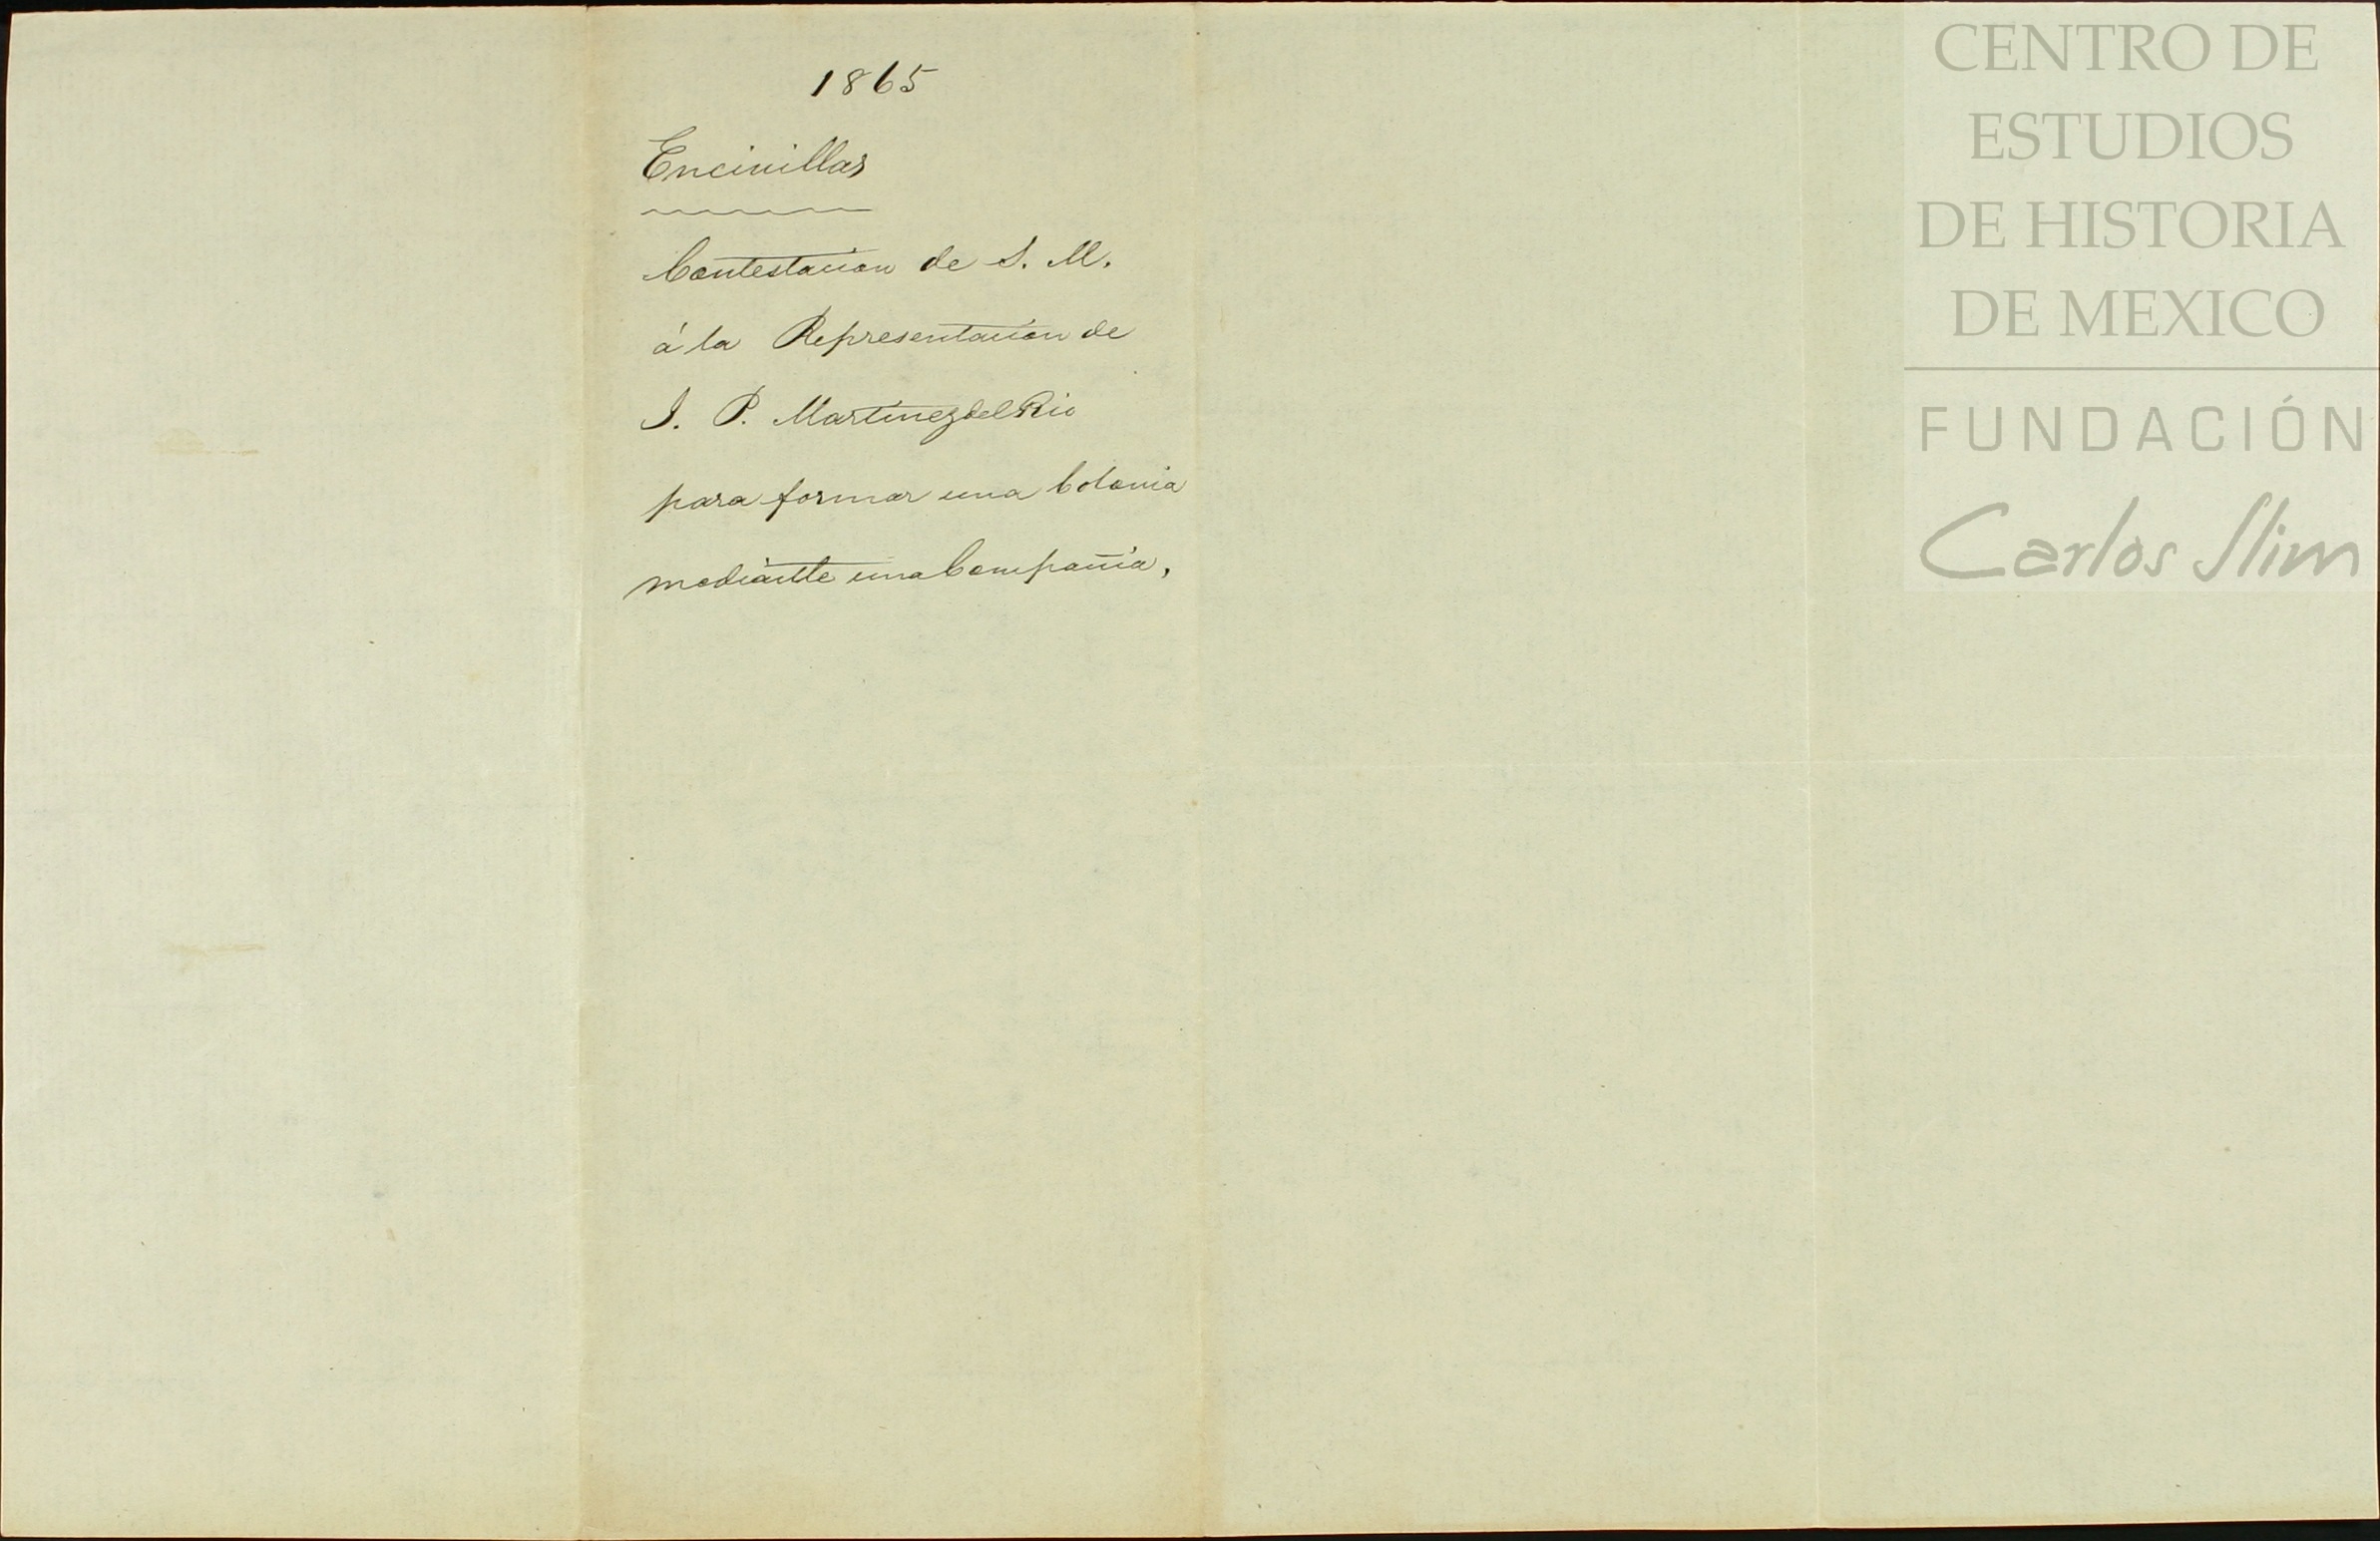 1865
Encinillas
Contestacion de S. M.
á la Representacion de
J. P. Martinez del Rio
para formar una Colonia
mediante una Compañia,
CENTRO DE
ESTUDIOS
DE HISTORIA
DE MEXICO
FUNDACIÓN
Carlos Slim